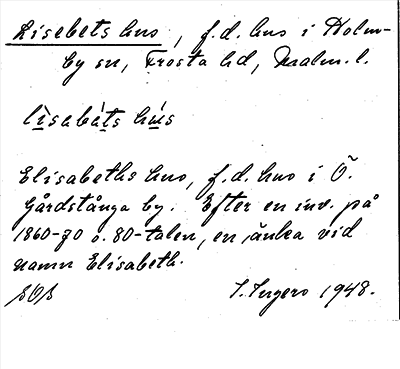 Lisebets hus, f.d. hus i Holm-
by sn, Frosta hd, Malm. l.
lisabäts hús
Elisabeths hus, f.d. hus i Ö.
Gårdstånga by. Efter en inv. på
1860-70 o. 80-talen, en änka vid
namn Elisabeth.
I. Ingers 1948.